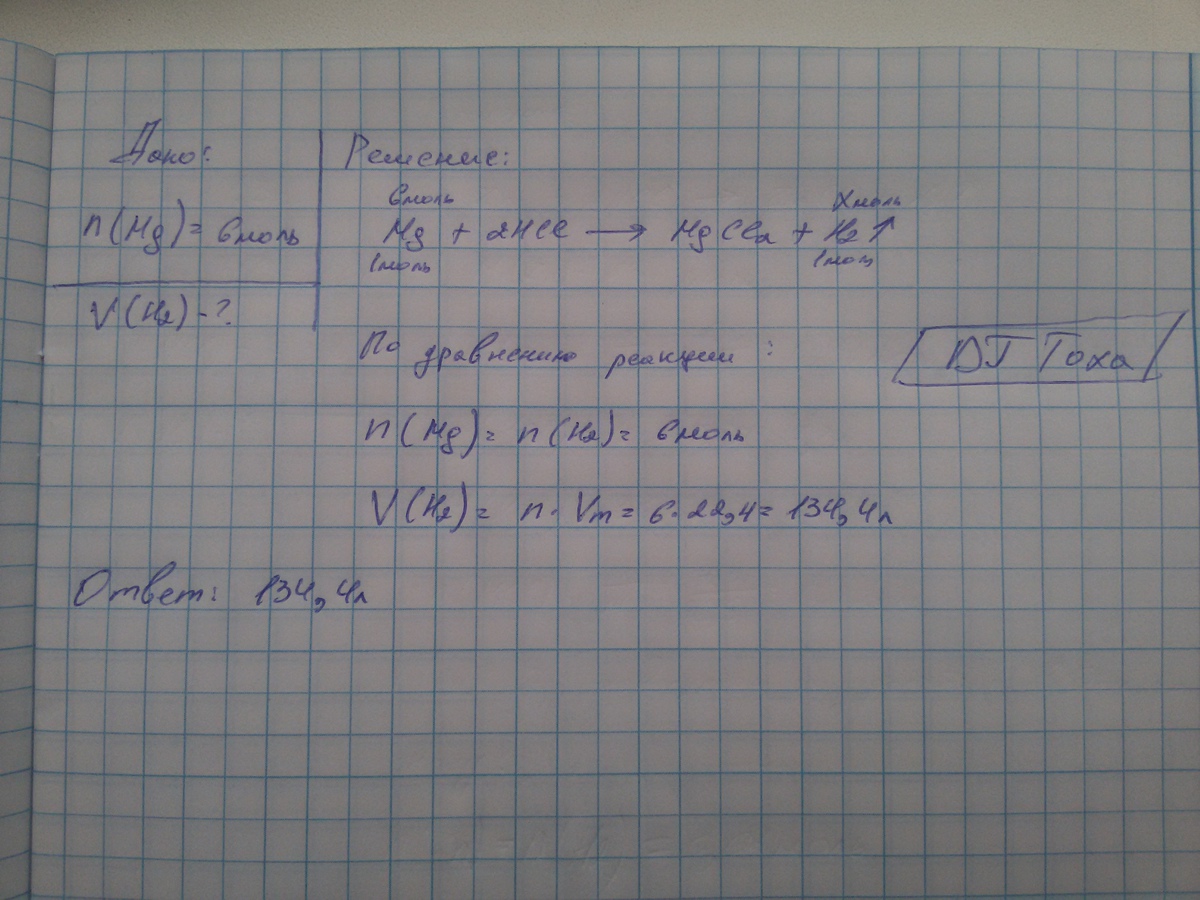 Дано:
n(Mg) = 6моль
V(H2) - ?
Решение:
6моль хмоль
Mg + 2HCl → MgCl2 + H2↑
1моль 1моль
По уравнению реакции :
DJ Toxa
n(Mg) = n(H2) = 6моль
V(H2) = n · Vm = 6·22,4 = 134,4л
Ответ: 134,4л